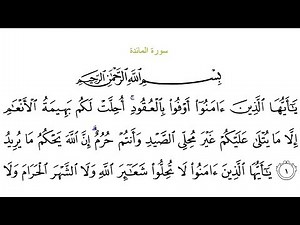 سورة المائدة
بِسْمِ اللَّهِ الرَّحْمَٰنِ الرَّحِيمِ
يَٰٓأَيُّهَا ٱلَّذِينَ ءَامَنُوٓا۟ أَوْفُوا۟ بِٱلْعُقُودِ ۚ أُحِلَّتْ لَكُم بَهِيمَةُ ٱلْأَنْعَٰمِ
إِلَّا مَا يُتْلَىٰ عَلَيْكُمْ غَيْرَ مُحِلِّى ٱلصَّيْدِ وَأَنتُمْ حُرُمٌ ۗ إِنَّ ٱللَّهَ يَحْكُمُ مَا يُرِيدُ
١ يَٰٓأَيُّهَا ٱلَّذِينَ ءَامَنُوا۟ لَا تُحِلُّوا۟ شَعَٰٓئِرَ ٱللَّهِ وَلَا ٱلشَّهْرَ ٱلْحَرَامَ وَلَا